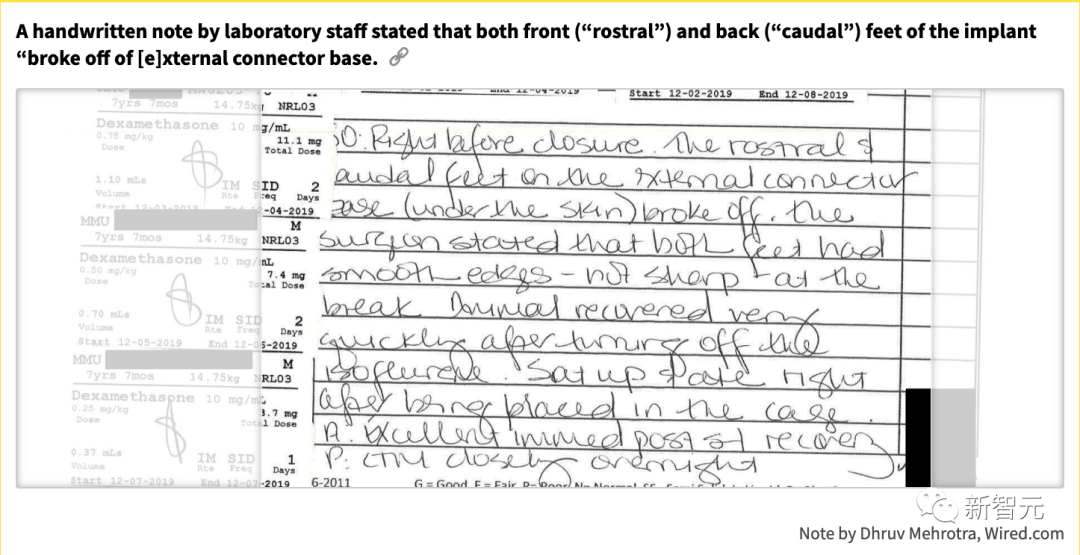 A handwritten note by laboratory staff stated that both front (“rostral”) and back (“caudal”) feet of the implant
“broke off of [e]xternal connector base.
7yrs 7mos 14.75kg NRL03
Start 12-02-2019 End 12-08-2019
Dexamethasone 10 mg/mL
0.75 mg/kg 11.1 mg
Dose Total Dose
1.10 mLs IM SID 2
Volume Rte Freq Days
-04-2019
MMU M
7yrs 7mos 14.75kg NRL03
Dexamethasone 10 mg/mL
0.50 mg/kg 7.4 mg
Dose Total Dose
0.70 mLs IM SID 2
Volume Rte Freq Days
Start 12-05-2019 End 12-06-2019
MMU M
7yrs 7mos 14.75kg NRL03
Dexamethasone 10 mg/mL
0.25 mg/kg 3.7 mg
Dose Total Dose
0.37 mLs IM SID 1
Volume Rte Freq Days
Start 12-07-2019 End 12-07-2019
O: Right before closure. The rostral &
caudal feet on the external connector
base (under the skin) broke off. The
surgeon stated that both feet had
smooth edges - not sharp - at the
break. Animal recovered very
quickly after turning off the
isoflurane. Sat up & ate right
after being placed in the cage.
A: Excellent immed post recovery
P: CTM closely overnight
6-2011 G = Good F = Fair
新智元
Note by Dhruv Mehrotra, Wired.com